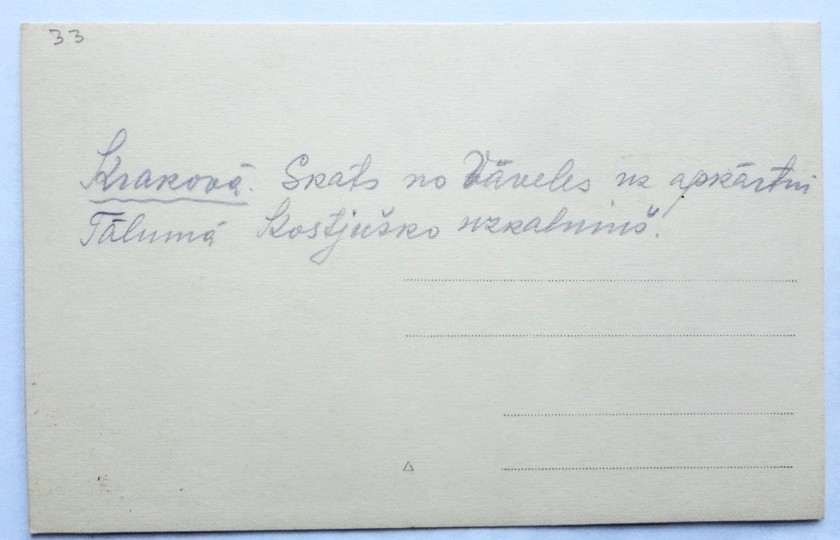 33
Krakovā. Skats no Vāveles uz apkārtni
Tālumā Kostjuško uzkalniņš.